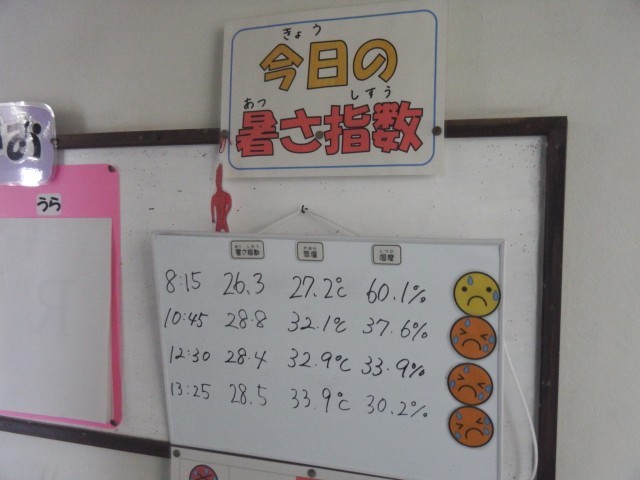 きょう
今日の
あつ しすう
暑さ指数
お
うら
暑さ指数 気温 湿度
8:15 26.3 27.2℃ 60.1%
10:45 28.8 32.1℃ 37.6%
12:30 28.4 32.9℃ 33.9%
13:25 28.5 33.9℃ 30.2%